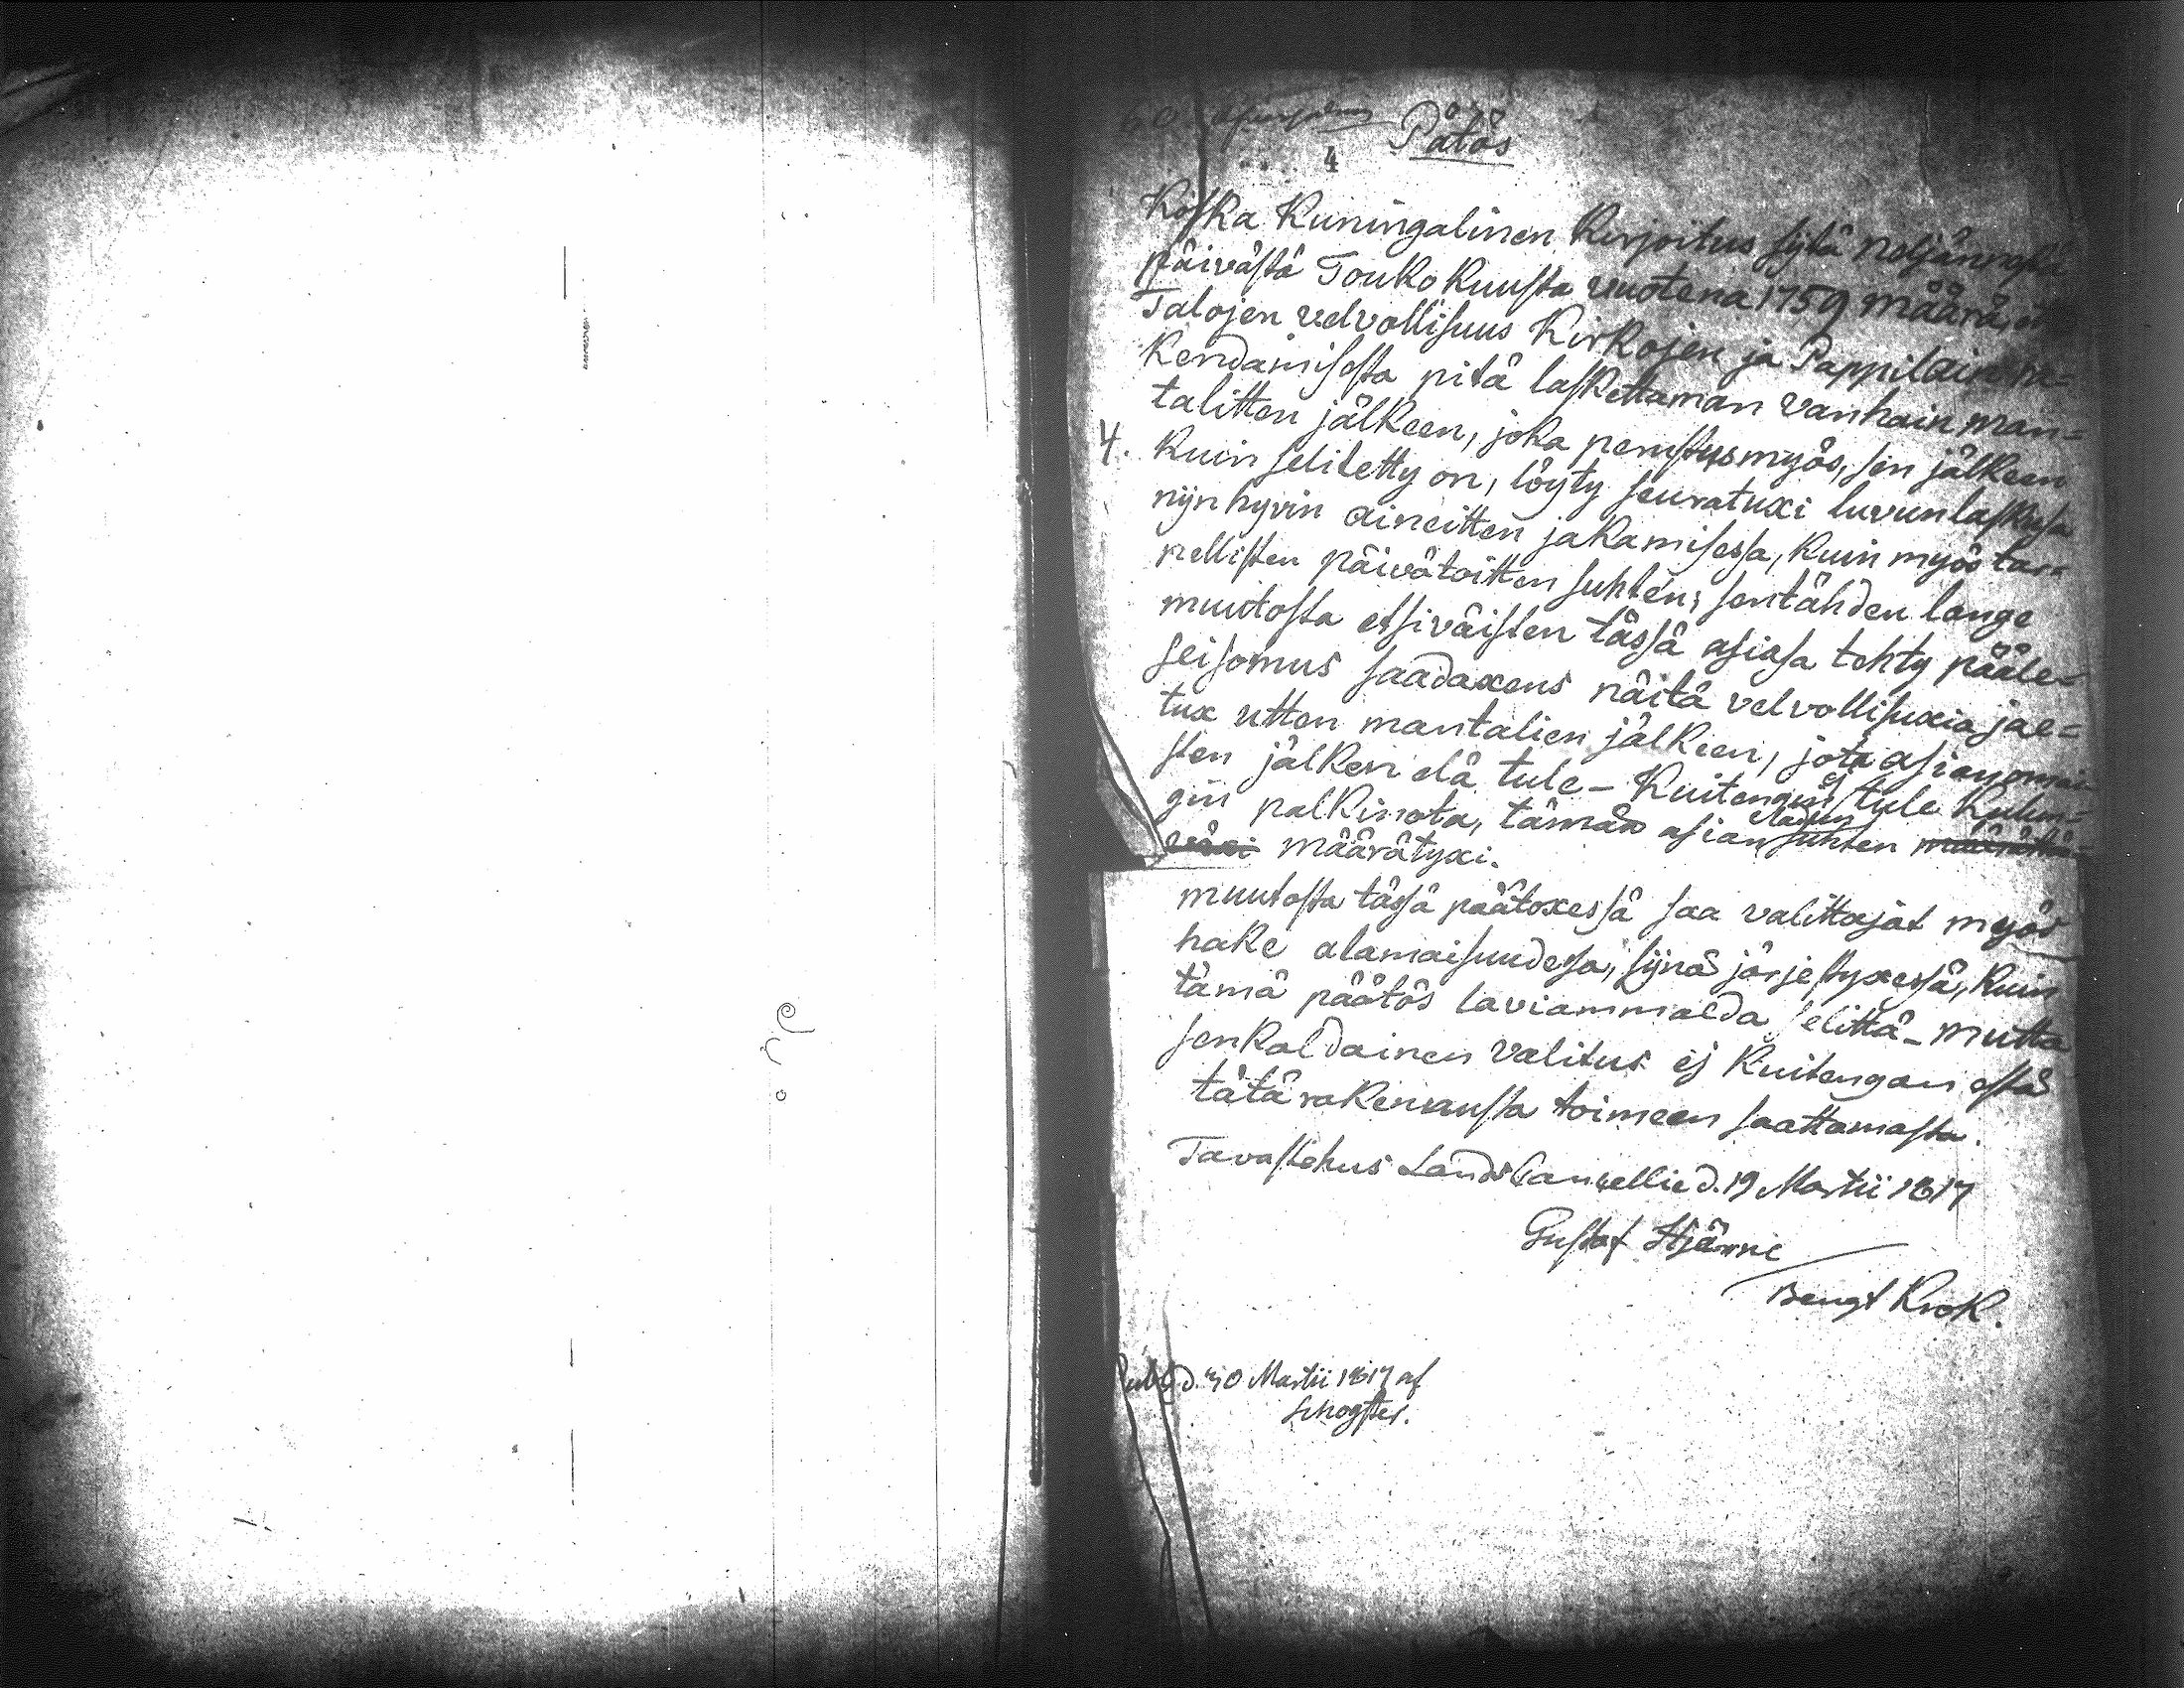 Påtös
4
Koska Kuningalinen Kirjoitus sytä neljänneste
päivästä Toukokuusta vuotena 1759 määrä, että
Talojen velvollisuus Kirkojen ja Pappilain ra=
kendamisesta pitä laskettaman vanhain man=
talitten jälkeen, joka perustus myös, sen jälkeen
4. kuin selitetty on, löyty seuratuxi luvunlaskusa
nijn hyvin aineitten jakamisesa, kuin myös tar=
pellisten päivätoitten suhten; sentähden lange
muutosta etsiväisten tässä asiasa tehty pääle=
seisomus saadaxens näitä velvollisuxia jae=
tux utten mantalien jälkeen, jota asianomai=
sten jälken elä tule – Kuitengin ej tule kulun=
gin palkinota, tämän asian suhten määrättä=
växi määrätyxi.
muutosta tässä päätöxessä saa valittajat myös
hake alamaisuudesa, sijnä järjestyxessä, kuin
tämä päätös laviammalda selittä – mutta
senkaldainen valitus ej kuitengan estä
tätä rakennusta toimeen saattamasta.
Tavastehus Lands Cancellie d. 19 Martii 1817
Gustaf Hjärne
Bengt Krok.
Publ. d. 30 Martii 1817 af